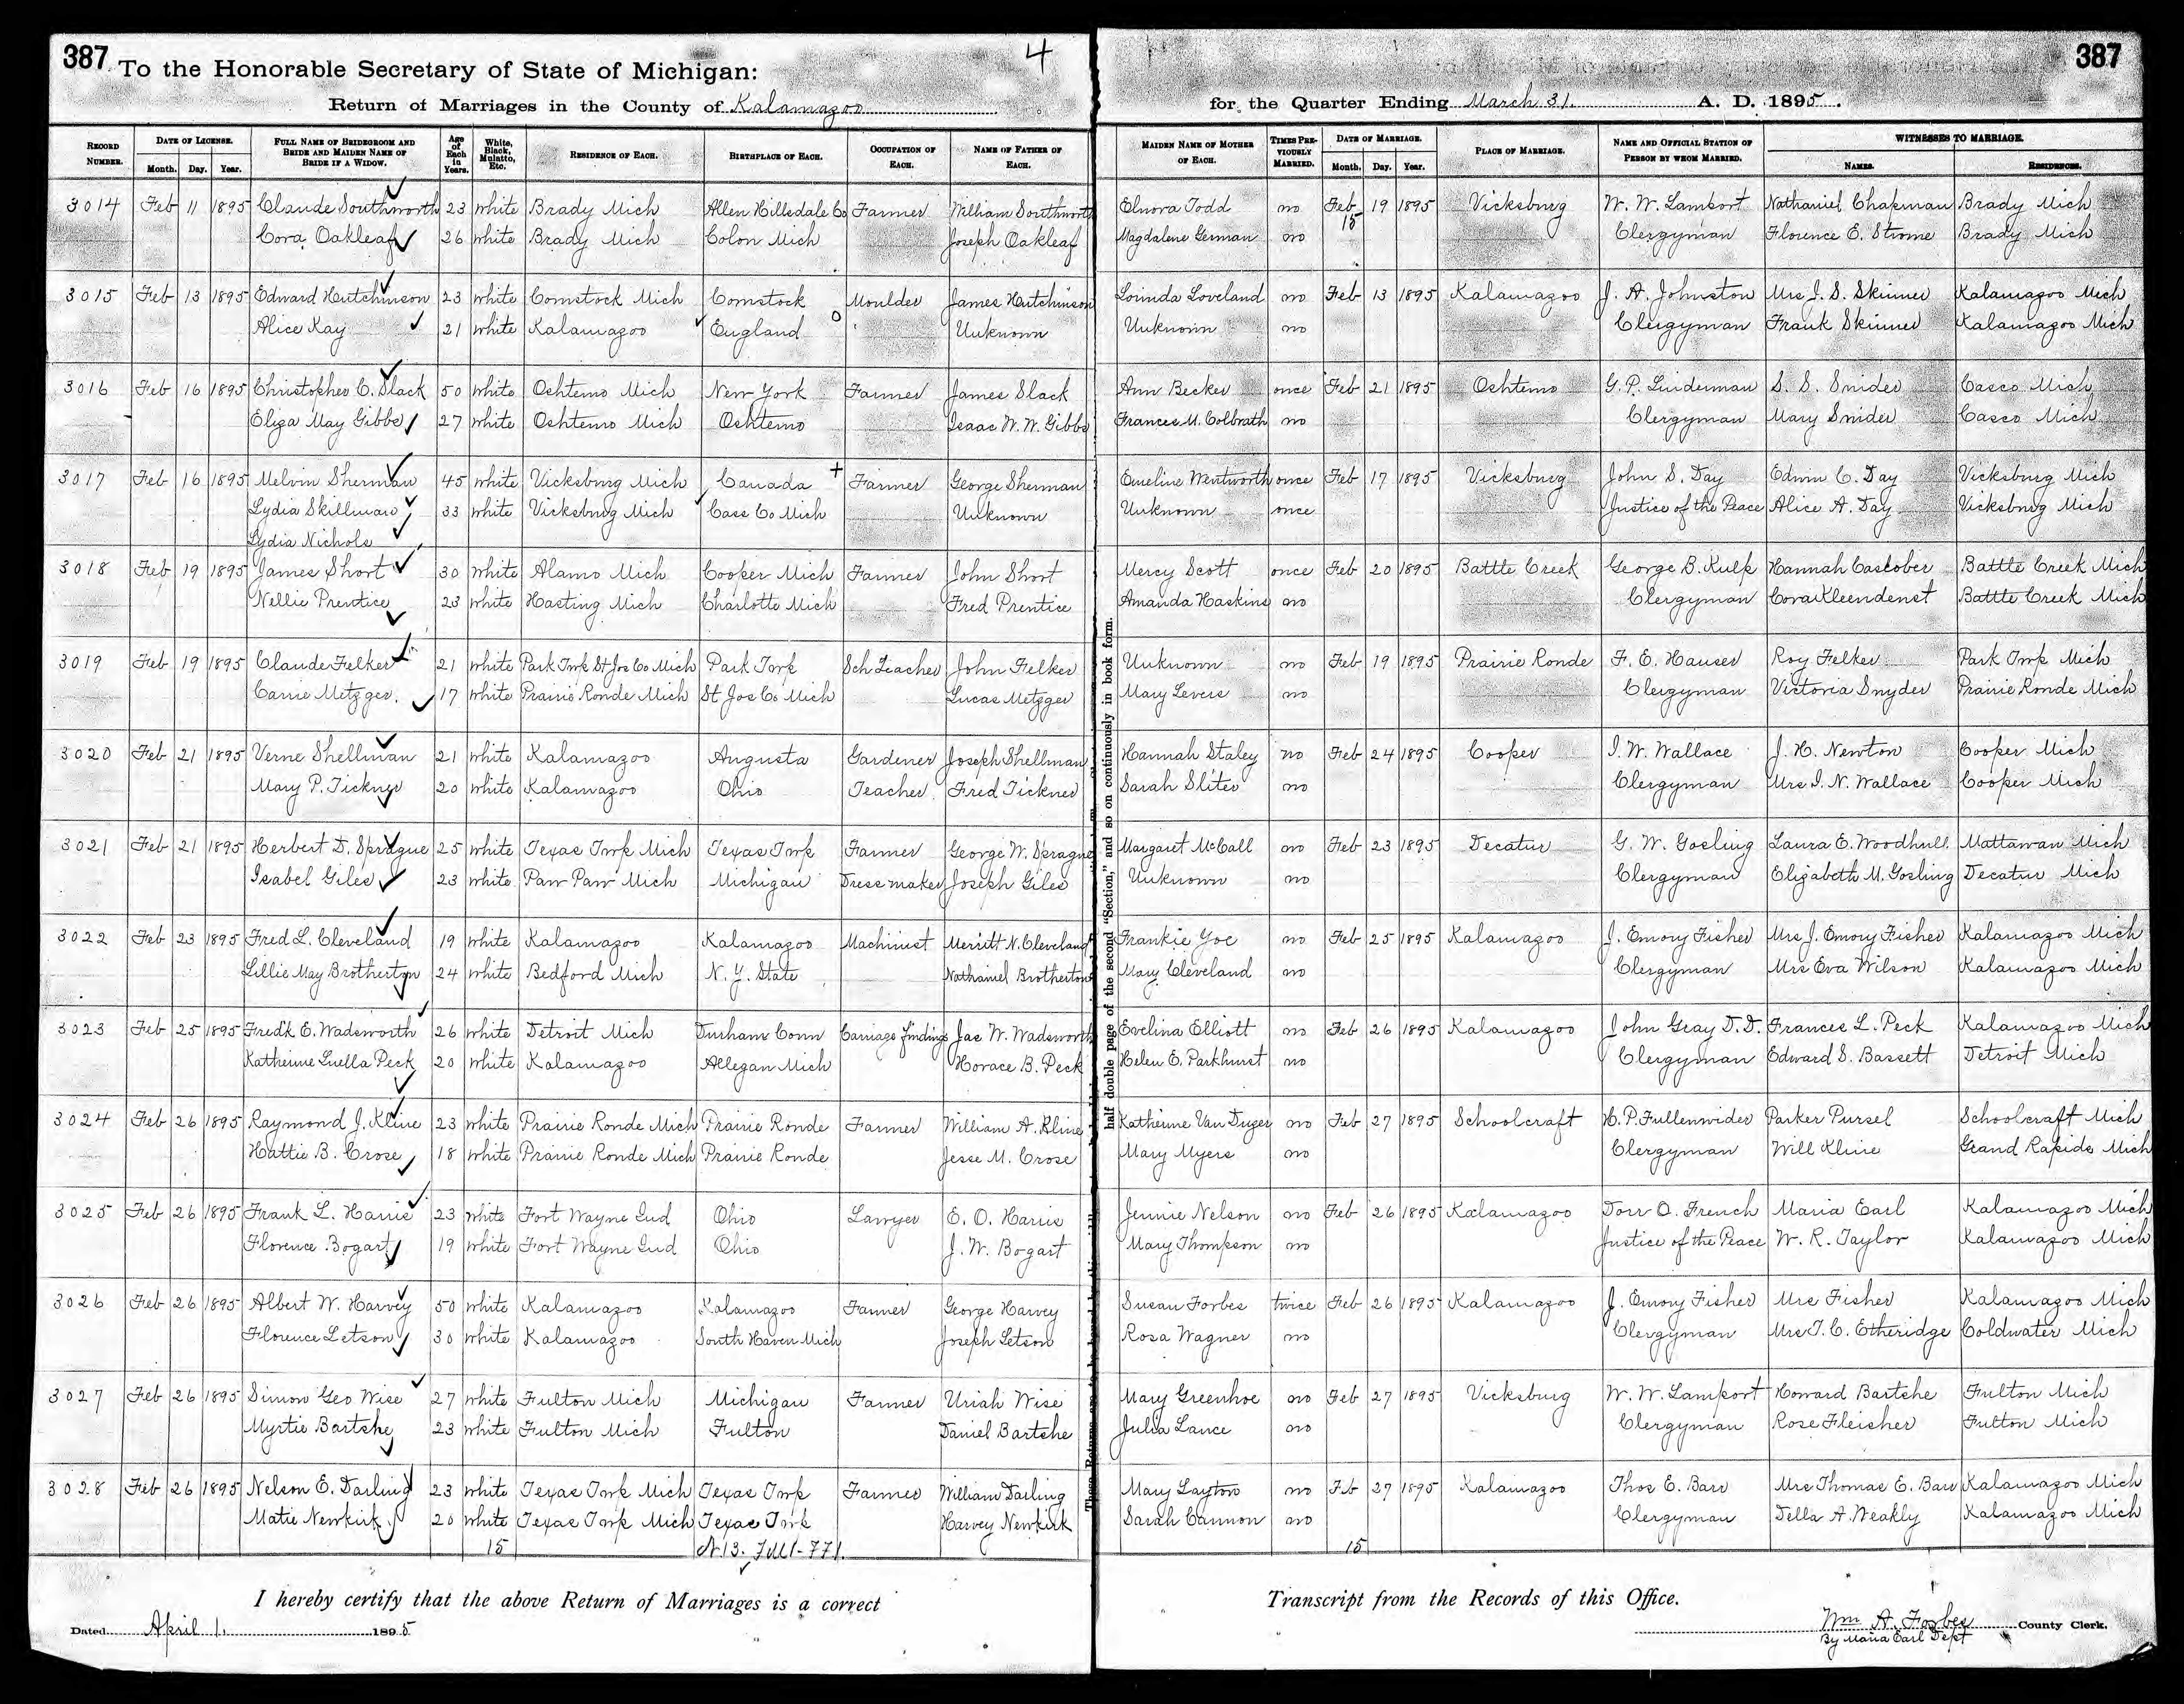 387 To the Honorable Secretary of State of Michigan: 4
Return of Marriages in the County of Kalamazoo
for the Quarter Ending March 31. A. D. 1895.
387
RECORD NUMBER. DATE OF LICENSE. Month. Day. Year. FULL NAME OF BRIDEGROOM AND BRIDE AND MAIDEN NAME OF BRIDE IF A WIDOW. Age of Each in Years. White, Black, Mulatto, Etc. RESIDENCE OF EACH. BIRTHPLACE OF EACH. OCCUPATION OF EACH. NAME OF FATHER OF EACH. MAIDEN NAME OF MOTHER OF EACH. TIMES PREVIOUSLY MARRIED. DATE OF MARRIAGE. Month. Day. Year. PLACE OF MARRIAGE. NAME AND OFFICIAL STATION OF PERSON BY WHOM MARRIED. WITNESSES TO MARRIAGE. NAMES. RESIDENCES.
3014 Feb 11 1895 Claude Southworth 23 White Brady Mich Allen Hillsdale Co Farmer William Southworth Elnora Todd no Feb 19 1895 Vicksburg W. W. Lamport Nathaniel Chapman Brady Mich
Cora Oakleaf 26 White Brady Mich Colon Mich Joseph Oakleaf Magdalene German no 15 Clergyman Florence E. Strome Brady Mich
3015 Feb 13 1895 Edward Hutchinson 23 White Comstock Mich Comstock Moulder James Hutchinson Lorinda Loveland no Feb 13 1895 Kalamazoo J. A. Johnston Mrs J. S. Skinner Kalamazoo Mich
Alice Kay 21 White Kalamazoo England Unknown Unknown no Clergyman Frank Skinner Kalamazoo Mich
3016 Feb 16 1895 Christopher C. Slack 50 White Oshtemo Mich New York Farmer James Slack Ann Becker once Feb 21 1895 Oshtemo G. P. Linderman S. S. Snider Casco Mich
Eliza May Gibbs 27 White Oshtemo Mich Oshtemo Isaac W. W. Gibbs Frances M. Colbrath no Clergyman Mary Snider Casco Mich
3017 Feb 16 1895 Melvin Sherman 45 White Vicksburg Mich Canada + Farmer George Sherman Emeline Wentworth once Feb 17 1895 Vicksburg John S. Day Edwin C. Day Vicksburg Mich
Lydia Skillman 33 White Vicksburg Mich Cass Co Mich Unknown Unknown once Justice of the Peace Alice A. Day Vicksburg Mich
Lydia Nichols
3018 Feb 19 1895 James Short 30 White Alamo Mich Cooper Mich Farmer John Short Mercy Scott once Feb 20 1895 Battle Creek George B. Kulp Hannah Castober Battle Creek Mich
Nellie Prentice 23 White Hasting Mich Charlotte Mich Fred Prentice Amanda Haskins no Clergyman Cora Kleendenst Battle Creek Mich
3019 Feb 19 1895 Claude Felker 21 White Park Twp St Jos Co Mich Park Twp Sch Teacher John Felker Unknown no Feb 19 1895 Prairie Ronde F. E. Hauser Roy Felker Park Twp Mich
Carrie Metzger. 17 White Prairie Ronde Mich St Jos Co Mich Lucas Metzger Mary Levers no Clergyman Victoria Snyder Prairie Ronde Mich
3020 Feb 21 1895 Verne Shellman 21 White Kalamazoo Augusta Gardener Joseph Shellman Hannah Staley no Feb 24 1895 Cooper I. W. Wallace J. H. Newton Cooper Mich
Mary P. Tickner 20 White Kalamazoo Ohio Teacher Fred Tickner Sarah Sliter no Clergyman Mrs I. N. Wallace Cooper Mich
3021 Feb 21 1895 Herbert D. Sprague 25 White Texas Twp Mich Texas Twp Farmer George W. Sprague Margaret McCall no Feb 23 1895 Decatur G. W. Gosling Laura E. Woodhull Mattawan Mich
Isabel Giles 23 White Paw Paw Mich Michigan Dress maker Joseph Giles Unknown no Clergyman Elizabeth M. Gosling Decatur Mich
3022 Feb 23 1895 Fred L. Cleveland 19 White Kalamazoo Kalamazoo Machinist Merritt N. Cleveland Frankie Yoe no Feb 25 1895 Kalamazoo J. Emory Fisher Mrs J. Emory Fisher Kalamazoo Mich
Lillie May Brotherton 24 White Bedford Mich N. Y. State Nathaniel Brotherton Mary Cleveland no Clergyman Mrs Eva Wilson Kalamazoo Mich
3023 Feb 25 1895 Fredk E. Wadsworth 26 White Detroit Mich Durham Conn Carriage findings Jas W. Wadsworth Evelina Elliott no Feb 26 1895 Kalamazoo John Gray D. D. Frances L. Peck Kalamazoo Mich
Katherine Luella Peck 20 White Kalamazoo Allegan Mich Horace B. Peck Helen E. Parkhurst no Clergyman Edward S. Bassett Detroit Mich
3024 Feb 26 1895 Raymond J. Kline 23 White Prairie Ronde Mich Prairie Ronde Farmer William A. Kline Katherine Van Duger no Feb 27 1895 Schoolcraft H. P. Fullenwider Parker Pursel Schoolcraft Mich
Hattie B. Crose 18 White Prairie Ronde Mich Prairie Ronde Jesse M. Crose Mary Myers no Clergyman Will Kline Grand Rapids Mich
3025 Feb 26 1895 Frank L. Harris 23 White Fort Wayne Ind Ohio Lawyer E. O. Harris Jennie Nelson no Feb 26 1895 Kalamazoo Dorr O. French Maria Earl Kalamazoo Mich
Florence Bogart 19 White Fort Wayne Ind Ohio J. W. Bogart Mary Thompson no Justice of the Peace W. R. Taylor Kalamazoo Mich
3026 Feb 26 1895 Albert W. Harvey 50 White Kalamazoo Kalamazoo Farmer George Harvey Susan Forbes twice Feb 26 1895 Kalamazoo J. Emory Fisher Mrs Fisher Kalamazoo Mich
Florence Letson 30 White Kalamazoo South Haven Mich Joseph Letson Rosa Wagner no Clergyman Mrs T. C. Etheridge Coldwater Mich
3027 Feb 26 1895 Simon Geo Wise 27 White Fulton Mich Michigan Farmer Uriah Wise Mary Greenhoe no Feb 27 1895 Vicksburg W. W. Lamport Howard Bartshe Fulton Mich
Myrtie Bartshe 23 White Fulton Mich Fulton Daniel Bartshe Julia Lance no Clergyman Rose Fleisher Fulton Mich
3028 Feb 26 1895 Nelson E. Darling 23 White Texas Twp Mich Texas Twp Farmer William Darling Mary Layton no Feb 27 1895 Kalamazoo Thos E. Barr Mrs Thomas E. Barr Kalamazoo Mich
Matie Newkirk 20 White Texas Twp Mich Texas Twp Harvey Newkirk Sarah Cannon no Clergyman Della A. Weakly Kalamazoo Mich
15 15
half double page of the second "Section," and so on continuously in book form.
I hereby certify that the above Return of Marriages is a correct Transcript from the Records of this Office.
Dated April 1. 1895
Wm A. Forbes County Clerk.
By Maria Earl Dept